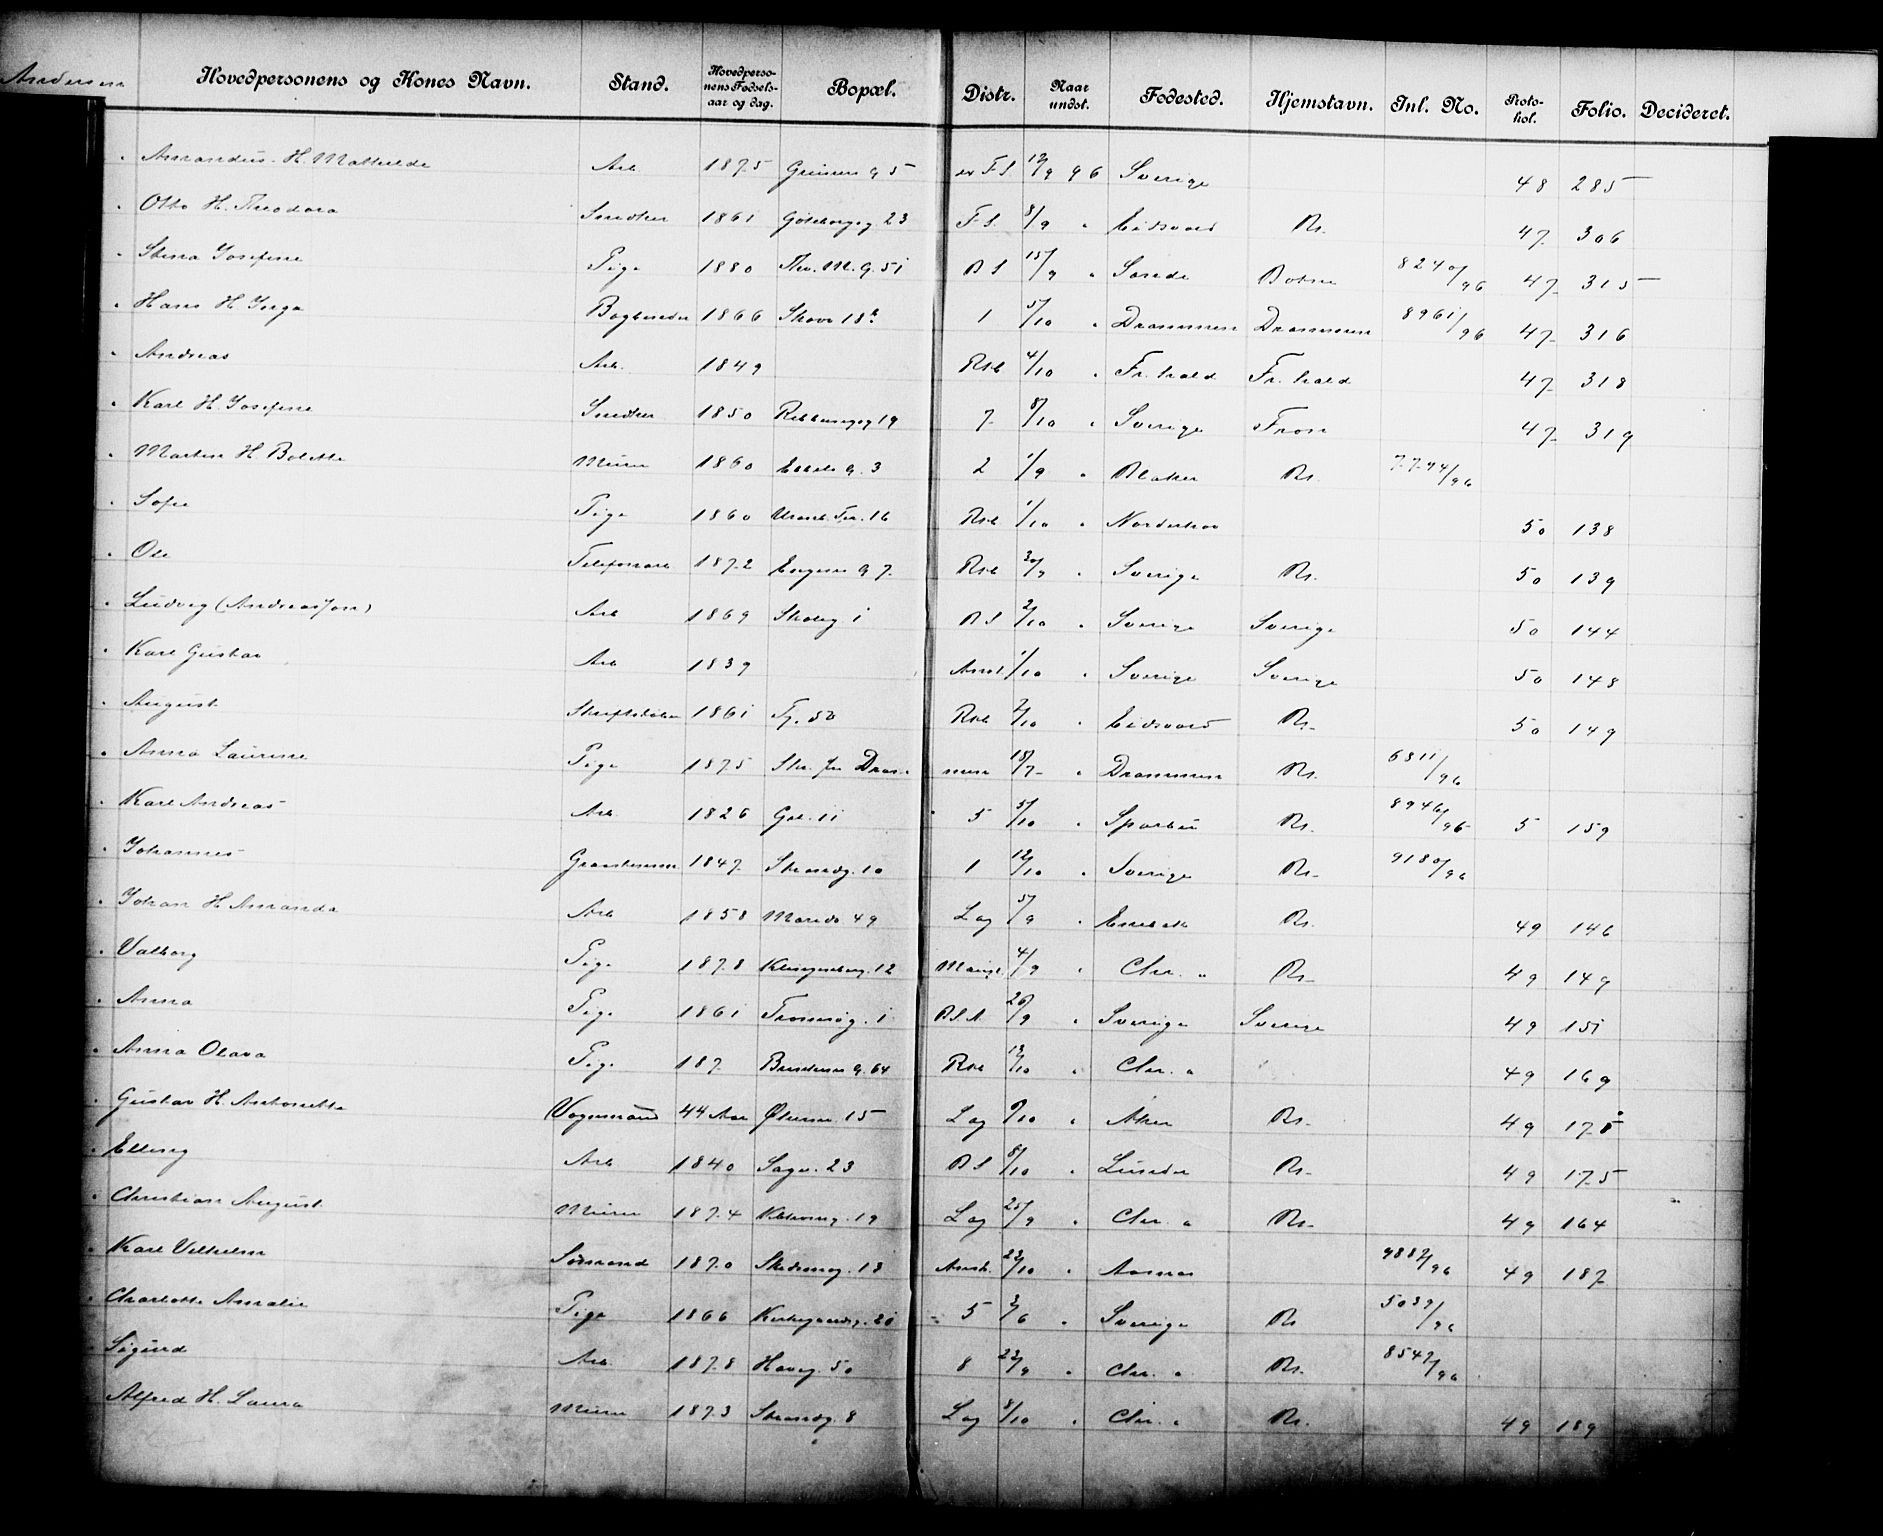 Andersen
Hovedpersonens og Kones Navn. Stand. Hovedpersonens Fødselsaar og dag. Bopæl. Distr. Naar undst. Fødested. Hjemstavn. Inl. No. Protokol. Folio. Decideret.
Amandus H. Mathilde Arb 1875 g 5 F S 12/9 96 Sverige 48 285
Otto H. Theodora Smedker 1861 Göteborgsg 23 F S. 8/9 " Eidsvold Kr. 47 306
Stina Josefine Pige 1880 Thv. M. g. 51 B S 15/9 " Sande Botne 8240/96 47 315
Hans H Inga Bogbinder 1866 Skovv 18 1 5/10 " Drammen Drammen 8961/96 47 316
Andreas Arb. 1849 Rst 4/10 " Fr.hald Fr.hald 47 318
Karl H. Josefine 1850 19 7 8/10 " Sverige 47 319
Martin H. Bolette Murer 1860 g. 3 2 1/9 " Blaker Kr. 7794/96
Sofie Pige 1860 16 Rst 1/10 " Norderhov 50 138
Ole Telefonarb 1872 g 7 Rst 30/9 " Sverige Kr. 50 139
Ludvig (Andreassen) Arb 1869 1 B S 2/10 " Sverige Sverige 50 144
Karl Gustav Arb 1839 1/10 " Sverige Sverige 50 148
August 1861 50 Rst 2/10 " Eidsvold Kr. 50 149
Anna Laurine Pige 1875 Str. fra Drammen 18/7 " Drammen Kr. 6311/96
Karl Andreas Arb. 1826 Gab. 11 5 5/10 " Sparbu Kr. 8946/96 5 159
Johannes 1847 Strandg. 10 1 12/10 " Sverige Kr. 9180/96
Johan H Amanda Arb 1858 Marida 49 Lag 5/9 " Enebak Kr. 49 146
Valborg Pige 1878 Klingenberg. 12 4/9 " Chr. " Kr. 49 149
Anna Pige 1861 Tromsøg. 1 B.S.A. 26/9 " Sverige Sverige 49 151
Anna Olava Pige 187 g. 64 Rst 13/10 " Chr. " 49 169
Gustav H. Antonette Vognmand 44 Aar 15 Lag 9/10 " Aker Kr. 49 175
Elling Arb 1840 Sagv. 23 B S 8/10 " Lunder Kr. 49 175
Christian August Murer 1874 19 Lag 25/9 " Chr. " Kr. 49 164
Karl Vilhelm Sømand 1870 Skedsmog. 18 23/10 " Aasnes 9882/96 49 187
Charlotte Amalie Pige 1866 Kirkegaardsg. 20 5 3/6 " Sverige Kr. 5039/96
Sigurd Arb. 1878 Haveg. 50 8 22/9 " Chr. " Kr. 8547/96
Alfred H. Laura Murer 1873 Strandg 8 Lag 8/10 " Chr. " Kr. 49 189